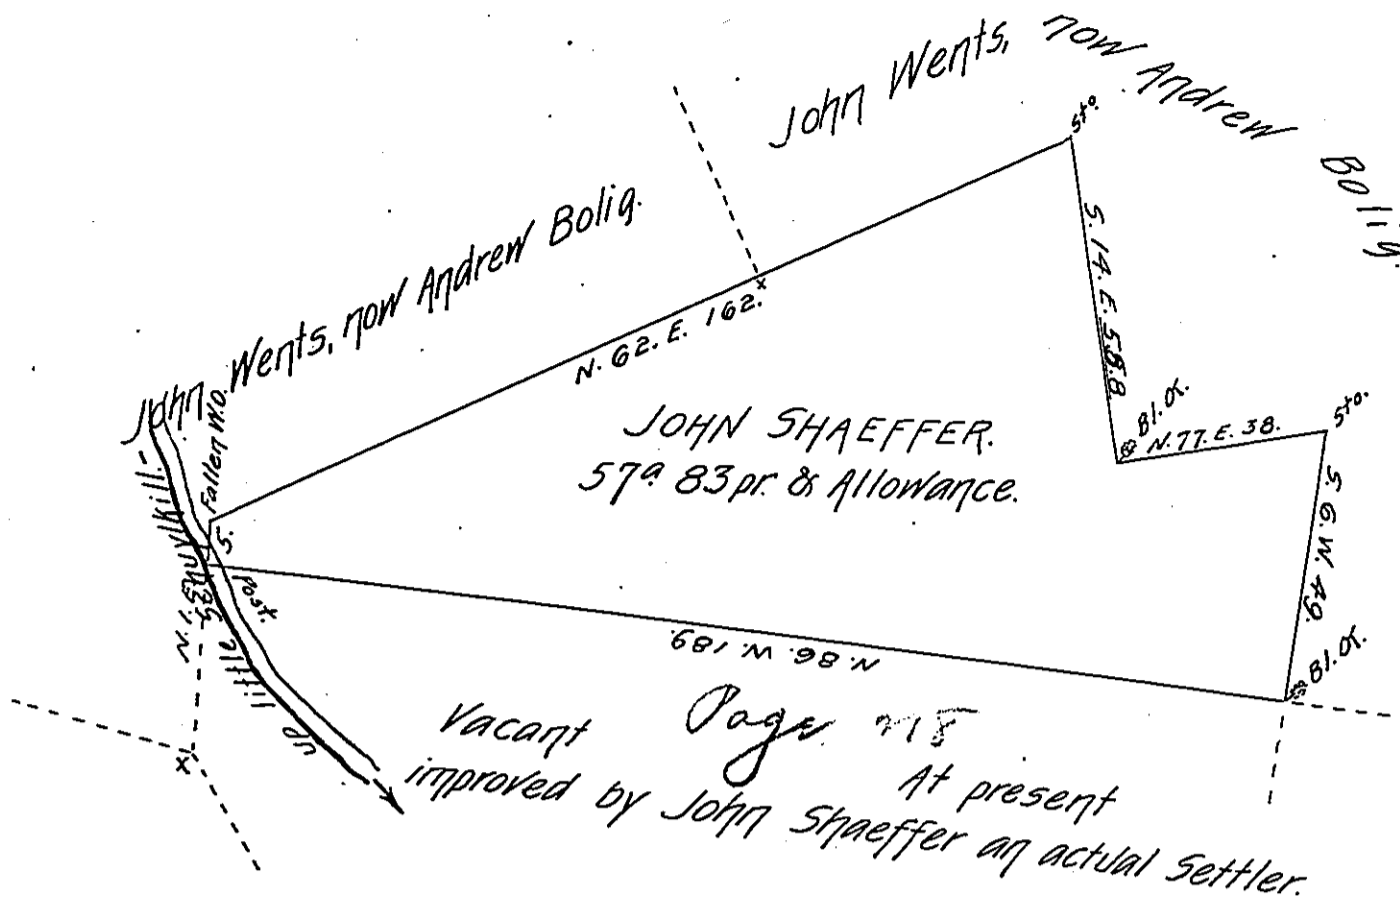 John Wents, now Andrew Bolig.
John Wents, now Andrew Bolig.
Sto.
S. 14. E. 58.8
Bl. O.
N. 77. E. 38.
Sto.
S. 6. W. 49.
Bl. O.
N. 62. E. 162.
x
JOHN SHAEFFER.
57a 83 pr. & Allowance.
Fallen W.O.
S.
Post.
N. 86. W. 189.
up little Schuylkill.
x
Vacant
Page
At present
improved by John Shaeffer an actual Settler.